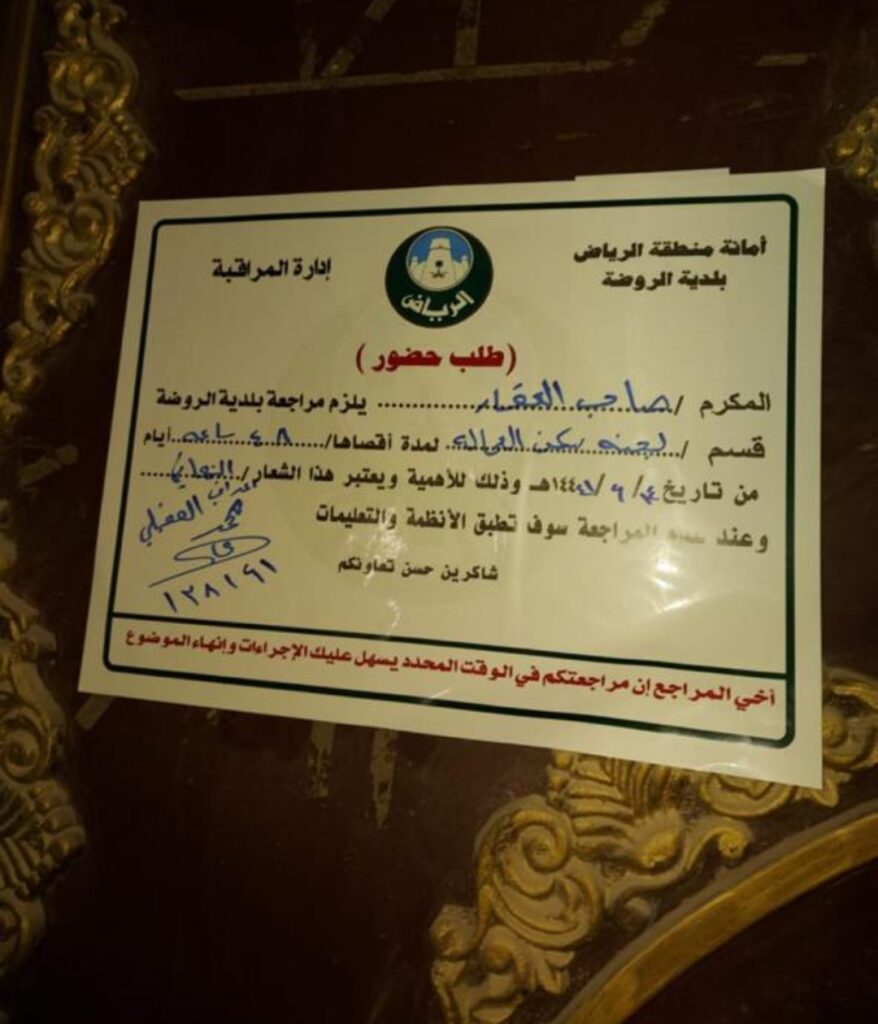 أمانة منطقة الرياض
بلدية الروضة
الرياض
إدارة المراقبة
(طلب حضور)
المكرم / صاحب العقار يلزم مراجعة بلدية الروضة
قسم / لجنة سكن العمالة لمدة أقصاها / ٤٨ ساعة أيام
من تاريخ / ٩ / ١٤٤هـ وذلك للأهمية ويعتبر هذا الشعار / النهائي
وعند عدم المراجعة سوف تطبق الأنظمة والتعليمات
شاكرين حسن تعاونكم
١٣٨١٦١
أخي المراجع إن مراجعتكم في الوقت المحدد يسهل عليك الإجراءات وإنهاء الموضوع